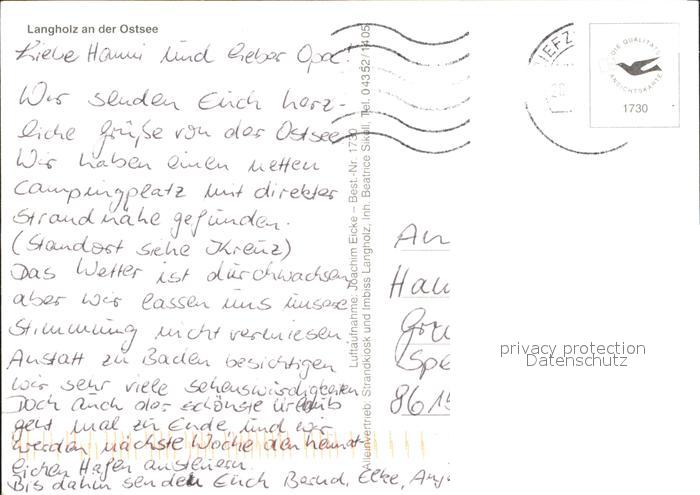 Langholz an der Ostsee
Liebe Hanni und lieber Opa!
Wir senden Euch herz-
liche Grüße von der Ostsee
Wir haben einen netten
Campingplatz mit direkter
Strandnähe gefunden.
(Standort siehe Kreuz)
Das Wetter ist durchwachsen,
aber wir lassen uns unsere
Stimmung nicht vermiesen.
Anstatt zu Baden besichtigen
wir sehr viele Sehenswürdigkeiten
Doch auch der schönste Urlaub
geht mal zu Ende und wir
werden nächste Woche den heimat-
lichen Hafen ansteuern.
Bis dahin senden Euch Bernd, Elke,
Luftaufnahme: Joachim Eicke – Best.-Nr. 1730
Alleinvertrieb: Strandkiosk und Imbiss Langholz, Inh. Beatrice Sikoll, Tel. 04352/1405
DIE QUALITÄTS
ANSICHTSKARTE
1730
An
Han
Gru
Spe
8615
privacy protection
Datenschutz